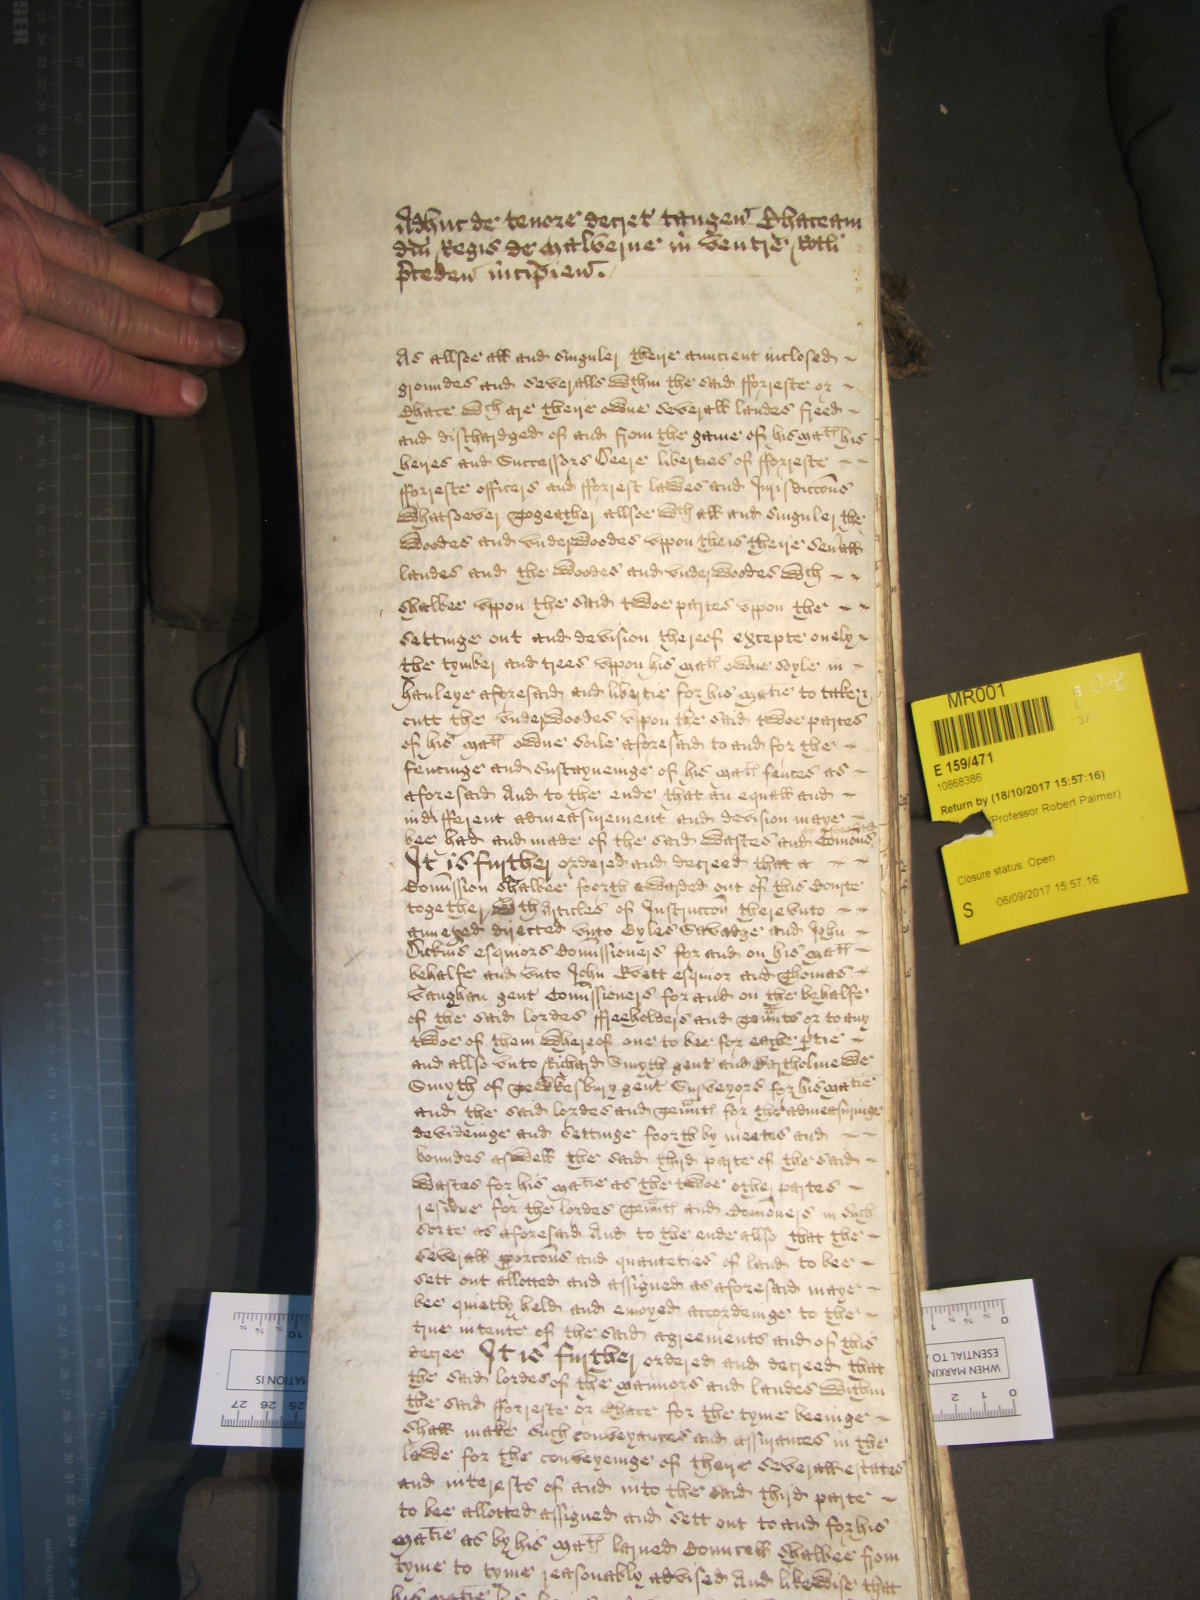 Adhuc de tenore decret tangen Chaceam
dni Regis de Malverne in ventre Rotli
preceden incipien.
As allsoe all and singuler theire auncient inclosed
groundes and severalls wthin the said fforreste or
Chace wch are theire owne severall landes freed
and dischardged of and from the game of his matis his
heires and Successors Deere liberties of fforreste
fforreste officers and fforrest lawes and Jurisdiccons
whatsoever Togeather allsoe wth all and singuler the
woodes and underwoodes uppon theis theire seuall
landes and the woodes and underwoodes wch
shalbee uppon the said twoe partes uppon the
settinge out and devision thereof excepte onely
the tymber and trees uppon his matis owne soyle in
Hanleye aforesaid and libertie for his matie to take &
cutt the underwoodes upon the said twoe partes
of his matis owne soile aforesaid to and for the
fencinge and sustayneinge of his matis fences as
aforesaid And to the ende that an equall and
indifferent admeasurement and devision maye
bee had and made of the said wastes and Comons
It is further ordered and decreed that a
Comission shalbee foorth awarded out of this Courte
together wth Articles of Instruccon thereunto
annexed directed unto Gyles Savadge and John
esquiors Comissioners for and on his matis
behalfe and unto John esquior and Thomas
Vaughan gent Comissioners for and on the behalfe
of the said lordes ffreeholders and Tenants or to any
twoe of them whereof one to bee for eache ptie
and allso unto Richard Smyth gent and Bartholmewe
Smyth of Tewkesbury gent Surveyors for his matie
and the said lordes and Tenants for the admeasuringe
devideinge and settinge foorth by meetes and
boundes aswell the said third parte of the said
wastes for his matie as the twoe other partes
residue for the lordes Tenants and Comoners in such
sorte as aforesaid And to the ende allso that the
severall porcons and quanteties of land to bee
sett out allotted and assigned as aforesaid maye
bee quietly held and enioyed accordeinge to the
true intente of the said agreements and of this
decree It is further ordered and decreed that
the said lordes of the mannors and landes within
the said fforreste or Chace for the tyme beeinge
shall make such conveyances and assurances in the
lawe for the conveyeinge of theire severall estates
and interests of and into the said third parte
to bee allotted assigned and sett out to and for his
matie as by his matis larned Councell shalbee from
tyme to tyme reasonably advised And likewise that
his matie
MR001
E 159/471
10868386
Return by (18/10/2017 15:57:16)
(Professor Robert Palmer)
Closure status Open
S 06/09/2017 15:57:16
0 1
ESENTIAL TO
WHEN MARKIN
2 1 0
10
MATION IS
27 26 25